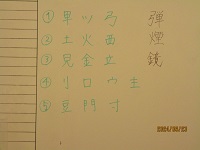 ① 単 ツ 弓 弾
② 土 火 西 煙
③ 見 金 立 鏡
④ リ 口 ウ 主
⑤ 豆 門 寸
2024/03/23